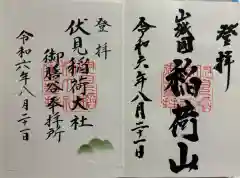 登拝
山城国
稲荷山
令和六年八月二十一日
登拝
伏見稲荷大社
御膳谷奉拝所
令和六年八月二十一日